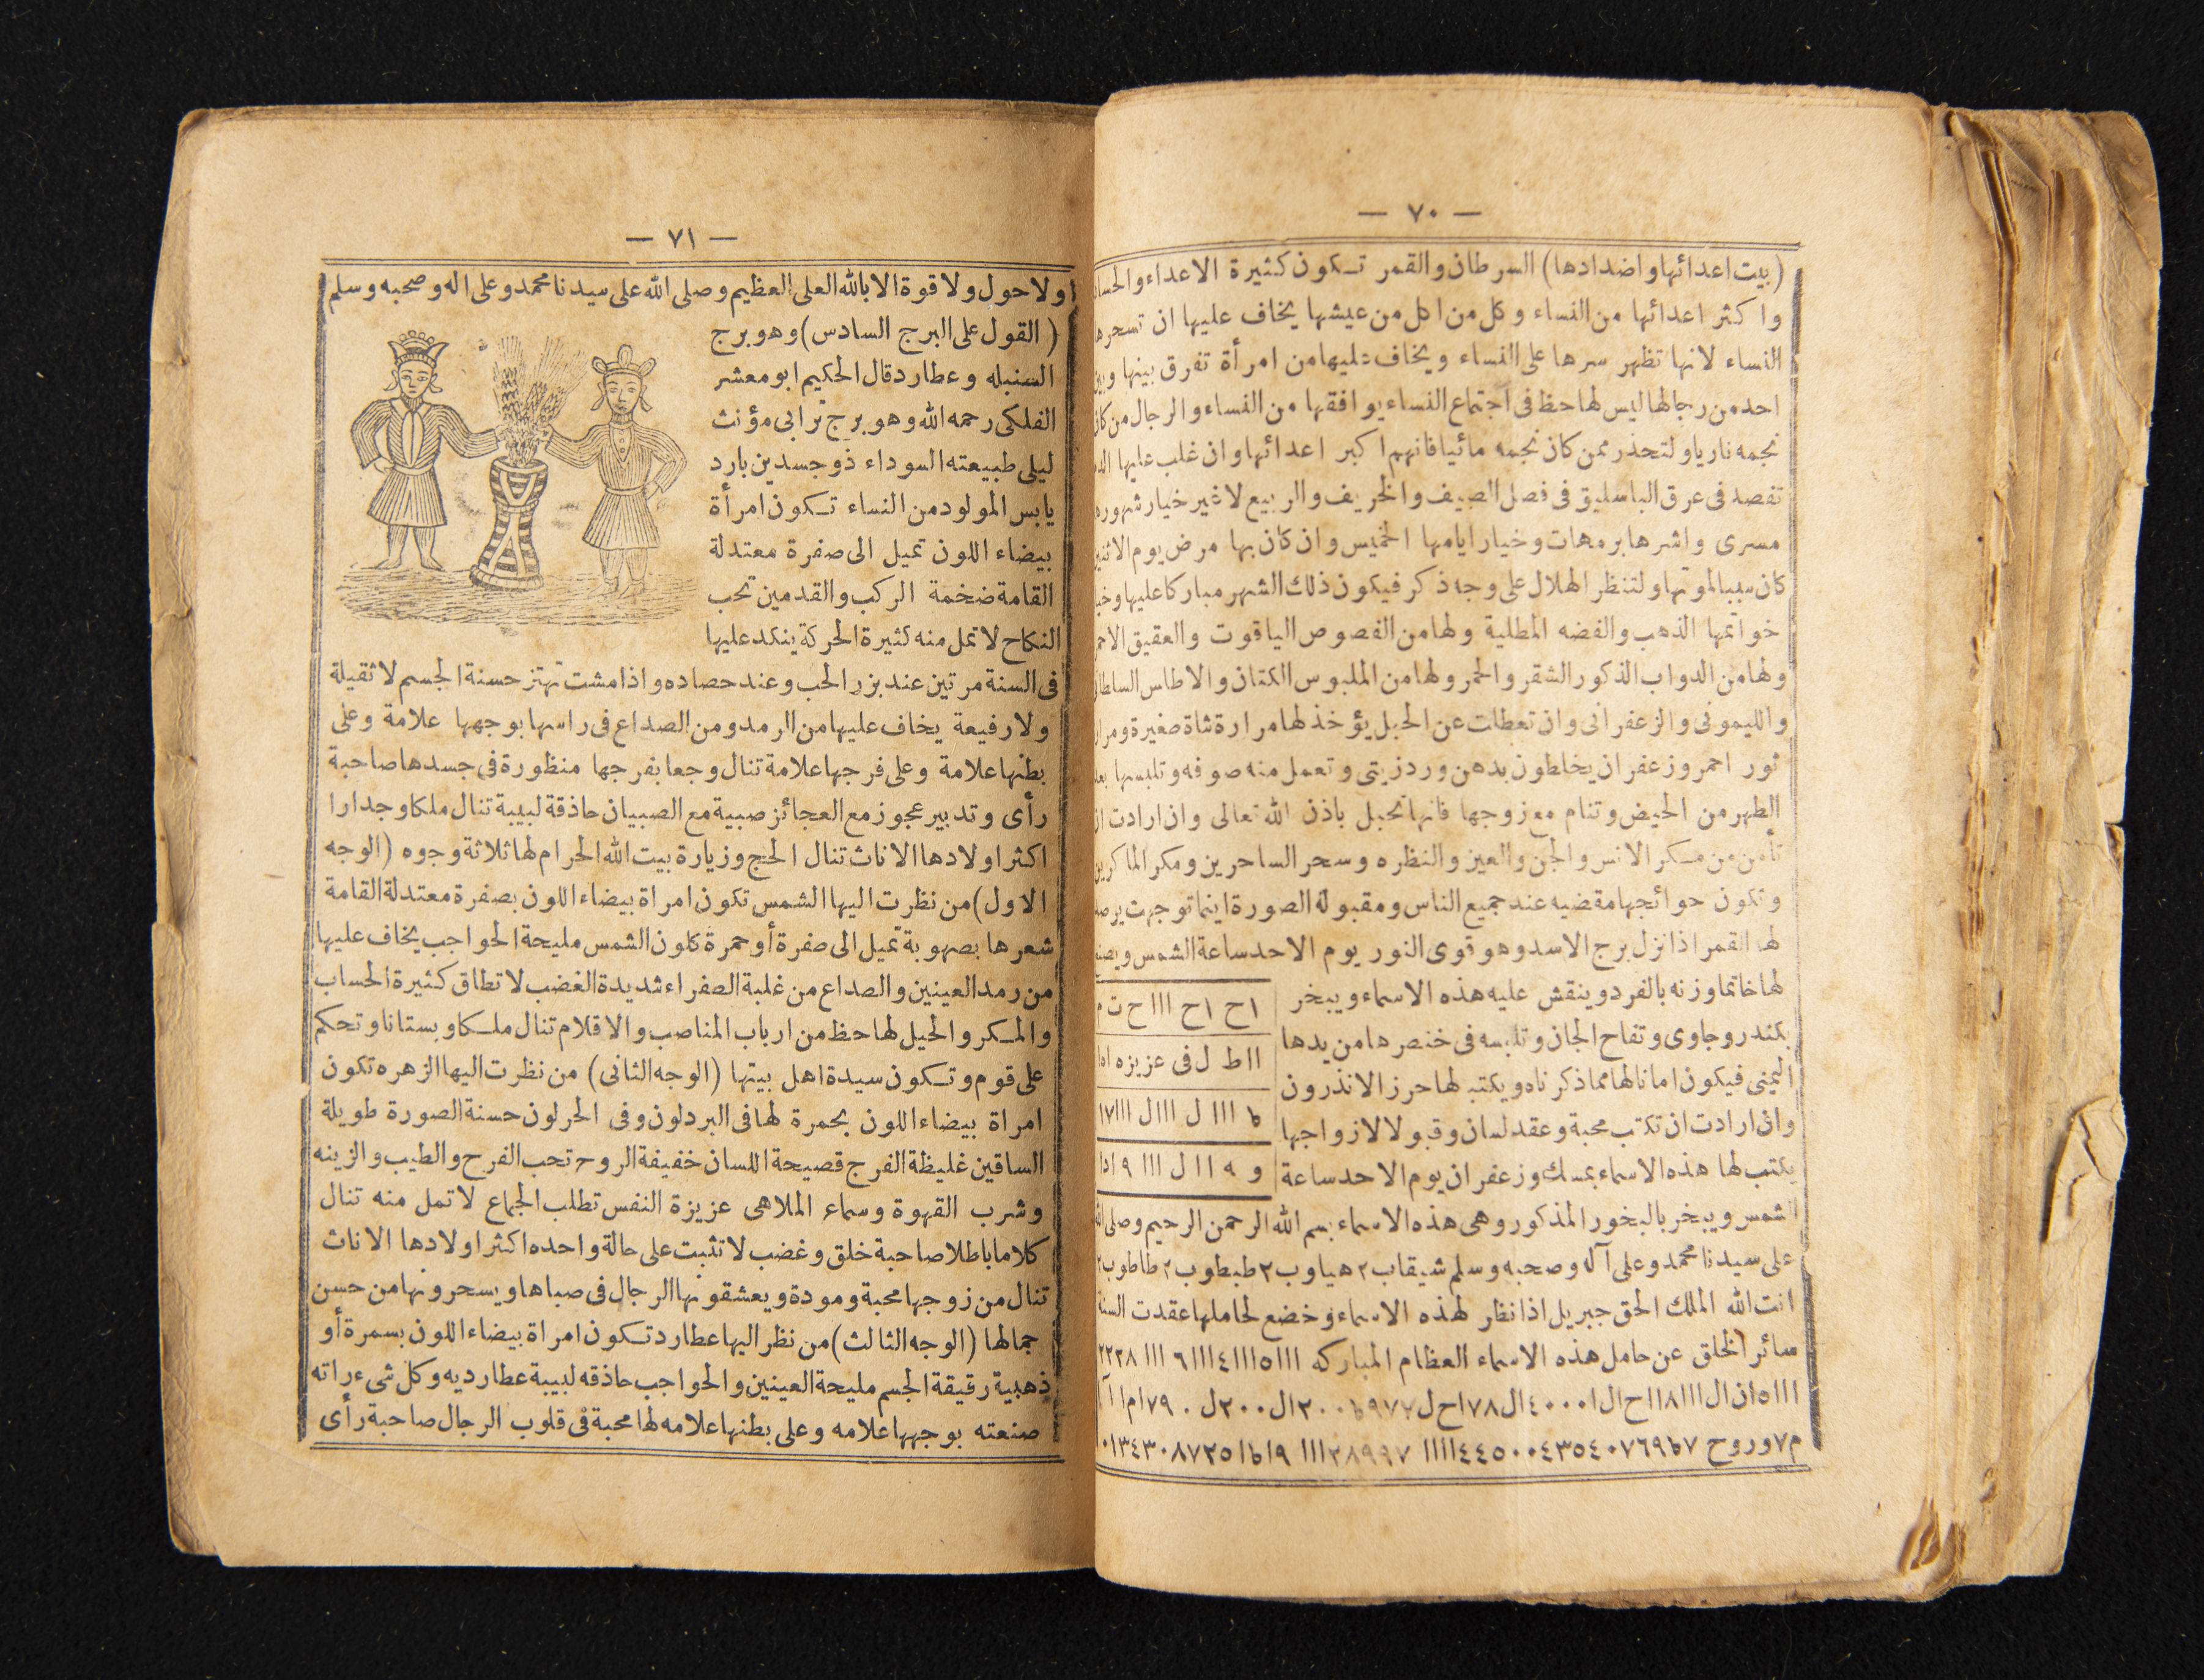 — ٧٠ —
(بيت اعدائها واضدادها) السرطان والقمر تكون كثيرة الاعداء
واكثر اعدائها من النساء وكل من اكل من عيشها يخاف عليها ان
النساء لانها تظهر سرها على النساء ويخاف عليها من امرأة تفرق بينها
احد من رجالها ليس لها حظ فى اجتماع النساء يوافقها من النساء والرجال من
نجمه ناريا ولتحذر ممن كان نجمه مائيا فانهم اكبر اعدائها وان غلب عليها
تفصد فى عرق الباسليق فى فصل الصيف والخريف والربيع لاغير خيار
مسرى واشرها برمهات وخيار ايامها الخميس وان كان بها مرض يوم
كان سببا لموتها ولتنظر الهلال على وجه ذكر فيكون ذلك الشهر مباركا عليها
خواتمها الذهب والفضه المطلية ولها من الفصوص الياقوت والعقيق
ولها من الدواب الذكور الشقر والحمر ولها من الملبوس الكتان والاطلس
والليمونى والزعفرانى وان تعطلت عن الحبل يؤخذ لها مرارة شاة صغيرة
ثور احمر وزعفران يخلطون بدهن ورد زيتى وتعمل منه صوفه وتلبسها
الطهر من الحيض وتنام مع زوجها فانها تحبل باذن الله تعالى وان ارادت
تأمن من مكر الانس والجن والعين والنظره وسحر الساحرين ومكر
وتكون حوائجها مقضيه عند جميع الناس ومقبولة الصورة اينما توجهت
لها القمر اذا نزل برج الاسد وهو قوى النور يوم الاحد ساعة الشمس
لها خاتما وزنه بالفرد وينقش عليه هذه الاسماء ويبخر
بكندر وجاوى وتفاح الجان وتلبسه فى خنصرها من يدها
اليمنى فيكون امانا لها مما ذكرناه ويكتب لها حرز الانذرون
وان ارادت ان تكتب محبة وعقد لسان وقبولا لازواجها
يكتب لها هذه الاسماء بمسك وزعفران يوم الاحد ساعة
١ح ١ح ١١١ ح ت
١١ط ل فى عزيزه
ط ١١١ ل ١١١ل ١١١٧١
و ه ١١ ل ١١١ ٩
الشمس ويبخر بالبخور المذكور وهى هذه الاسماء بسم الله الرحمن الرحيم وصلى
على سيدنا محمد وعلى آله وصحبه وسلم شيقاب ٢ هياوب ٢ طبطوب ٢ طاطوب
انت الله الملك الحق جبريل اذا نظر لهذه الاسماء وخضع لحاملها عقدت
سائر الخلق عن حامل هذه الاسماء العظام المباركه
— ٧١ —
ولا حول ولا قوة الا بالله العلى العظيم وصلى الله على سيدنا محمد وعلى اله وصحبه وسلم
( القول على البرج السادس) وهو برج
السنبله وعطارد قال الحكيم ابو معشر
الفلكى رحمه الله وهو برج ترابى مؤنث
ليلى طبيعته السوداء ذو جسدين بارد
يابس المولود من النساء تكون امرأة
بيضاء اللون تميل الى صفرة معتدلة
القامة ضخمة الركب والقدمين تحب
النكاح لا تمل منه كثيرة الحركة ينكد عليها
فى السنة مرتين عند بزر الحب وعند حصاده واذا مشت تهتز حسنة الجسم لا ثقيلة
ولا رفيعة يخاف عليها من الرمد ومن الصداع فى راسها بوجهها علامة وعلى
بطنها علامة وعلى فرجها علامة تنال وجعا بفرجها منظورة فى جسدها صاحبة
رأى وتدبير عجوز مع العجائز صبية مع الصبيان حاذقة لبيبة تنال ملكا وجدارا
اكثر اولادها الاناث تنال الحج وزيارة بيت الله الحرام لها ثلاثة وجوه (الوجه
الاول) من نظرت اليها الشمس تكون امراة بيضاء اللون بصفرة معتدلة القامة
شعرها بصهوبة تميل الى صفرة أو حمرة كلون الشمس مليحة الحواجب يخاف عليها
من رمد العينين والصداع من غلبة الصفراء شديدة الغضب لا تطاق كثيرة الحساب
والمكر والحيل لها حظ من ارباب المناصب والاقلام تنال ملكا وبستانا وتحكم
على قوم وتكون سيدة اهل بيتها (الوجه الثانى) من نظرت اليها الزهره تكون
امراة بيضاء اللون بحمرة لها فى البرد لون وفى الحر لون حسنة الصورة طويلة
الساقين غليظة الفرج فصيحة اللسان خفيفة الروح تحب الفرح والطيب والزينه
وشرب القهوة وسماع الملاهى عزيزة النفس تطلب الجماع لا تمل منه تنال
كلاما باطلا صاحبة خلق وغضب لا تثبت على حالة واحده اكثر اولادها الاناث
تنال من زوجها محبة ومودة ويعشقونها الرجال فى صباها ويسحرونها من حسن
جمالها (الوجه الثالث) من نظر اليها عطارد تكون امراة بيضاء اللون بسمرة أو
ذهبية رقيقة الجسم مليحة العينين والحواجب حاذقه لبيبة عطارديه وكل شىء راته
صنعته بوجهها علامه وعلى بطنها علامه لها محبة فى قلوب الرجال صاحبة رأى